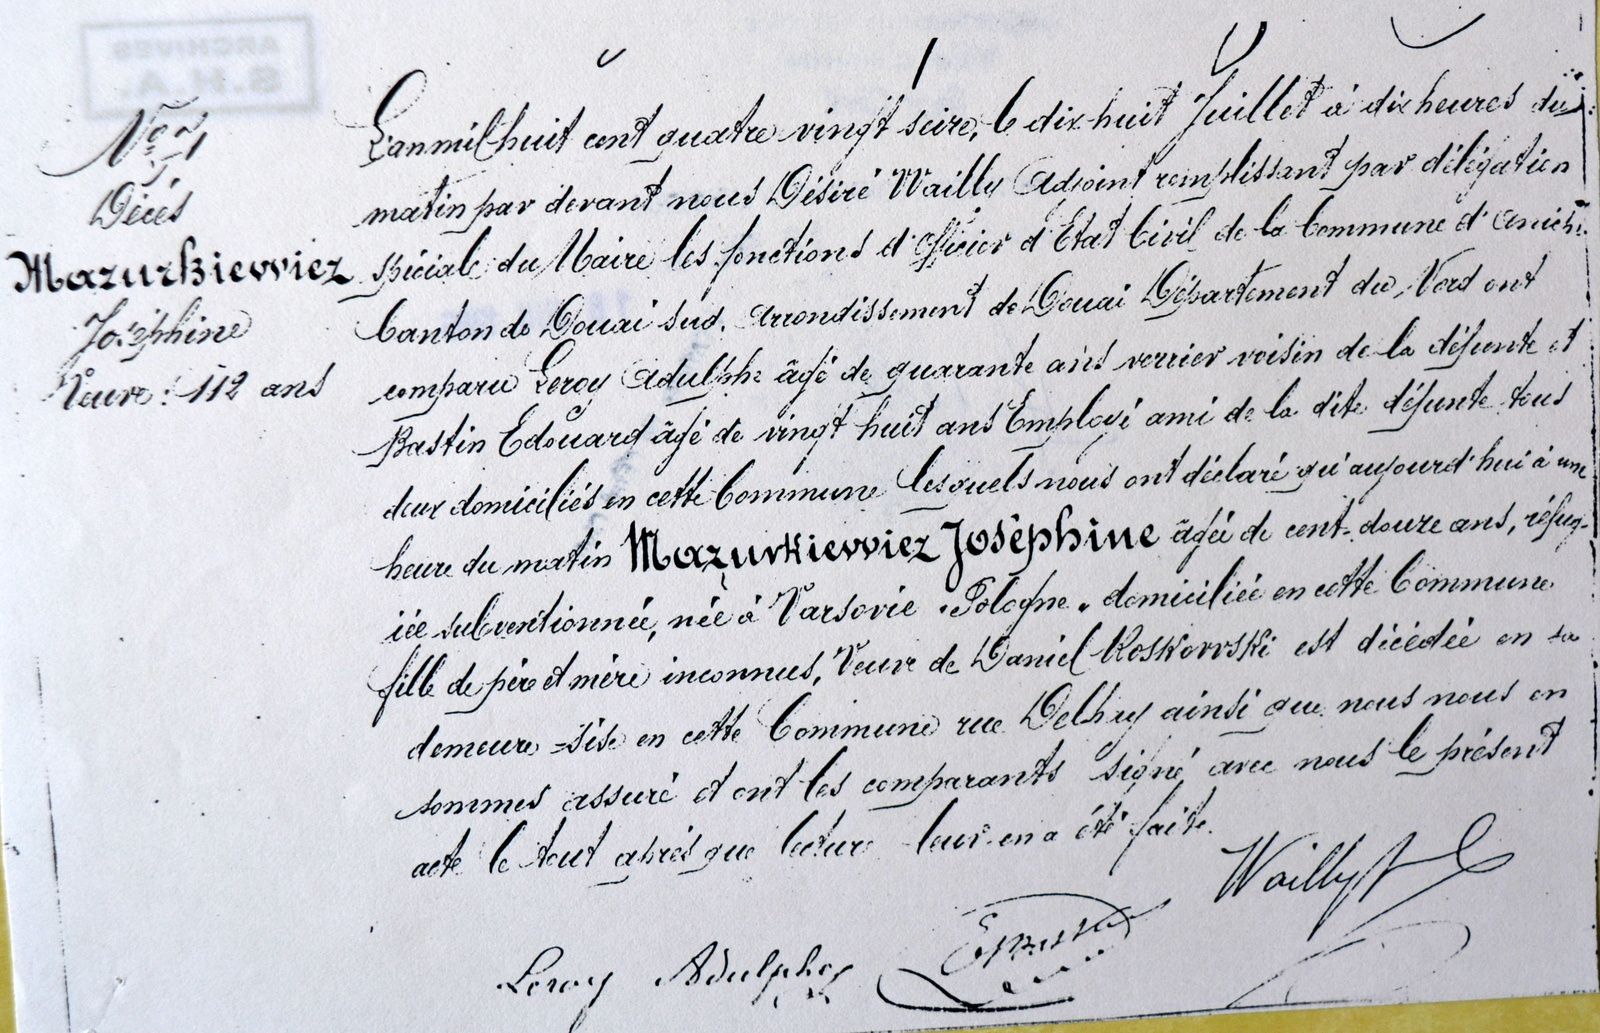 ARCHIVES
S.H.A.
Nº 71
Décès
Mazurkievviez
Joséphine
Veuve : 112 ans
L'an mil huit cent quatre vingt seize, le dix-huit Juillet à dix heures du
matin par devant nous Désiré Wailly Adjoint remplissant par délégation
spéciale du Maire les fonctions d'Officier d'Etat Civil de la Commune d'Aniche
Canton de Douai sud. Arrondissement de Douai Département du Nord ont
comparu Leroy Adulphe âgé de quarante ans verrier voisin de la défunte et
Bastin Edouard âgé de vingt huit ans Employé ami de la dite défunte tous
deux domiciliés en cette Commune lesquels nous ont déclaré qu'aujourd'hui à une
heure du matin Mazurkievviez Joséphine âgée de cent-douze ans, réfug-
iée subventionnée, née à Varsovie "Pologne" domiciliée en cette Commune
fille de père et mère inconnus, Veuve de Daniel Roskovvski est décédée en sa
demeure sise en cette Commune rue Delhay ainsi que nous nous en
sommes assuré et ont les comparants signé avec nous le présent
acte le tout après que lecture leur en a été faite.
Wailly
Leroy Adulphe